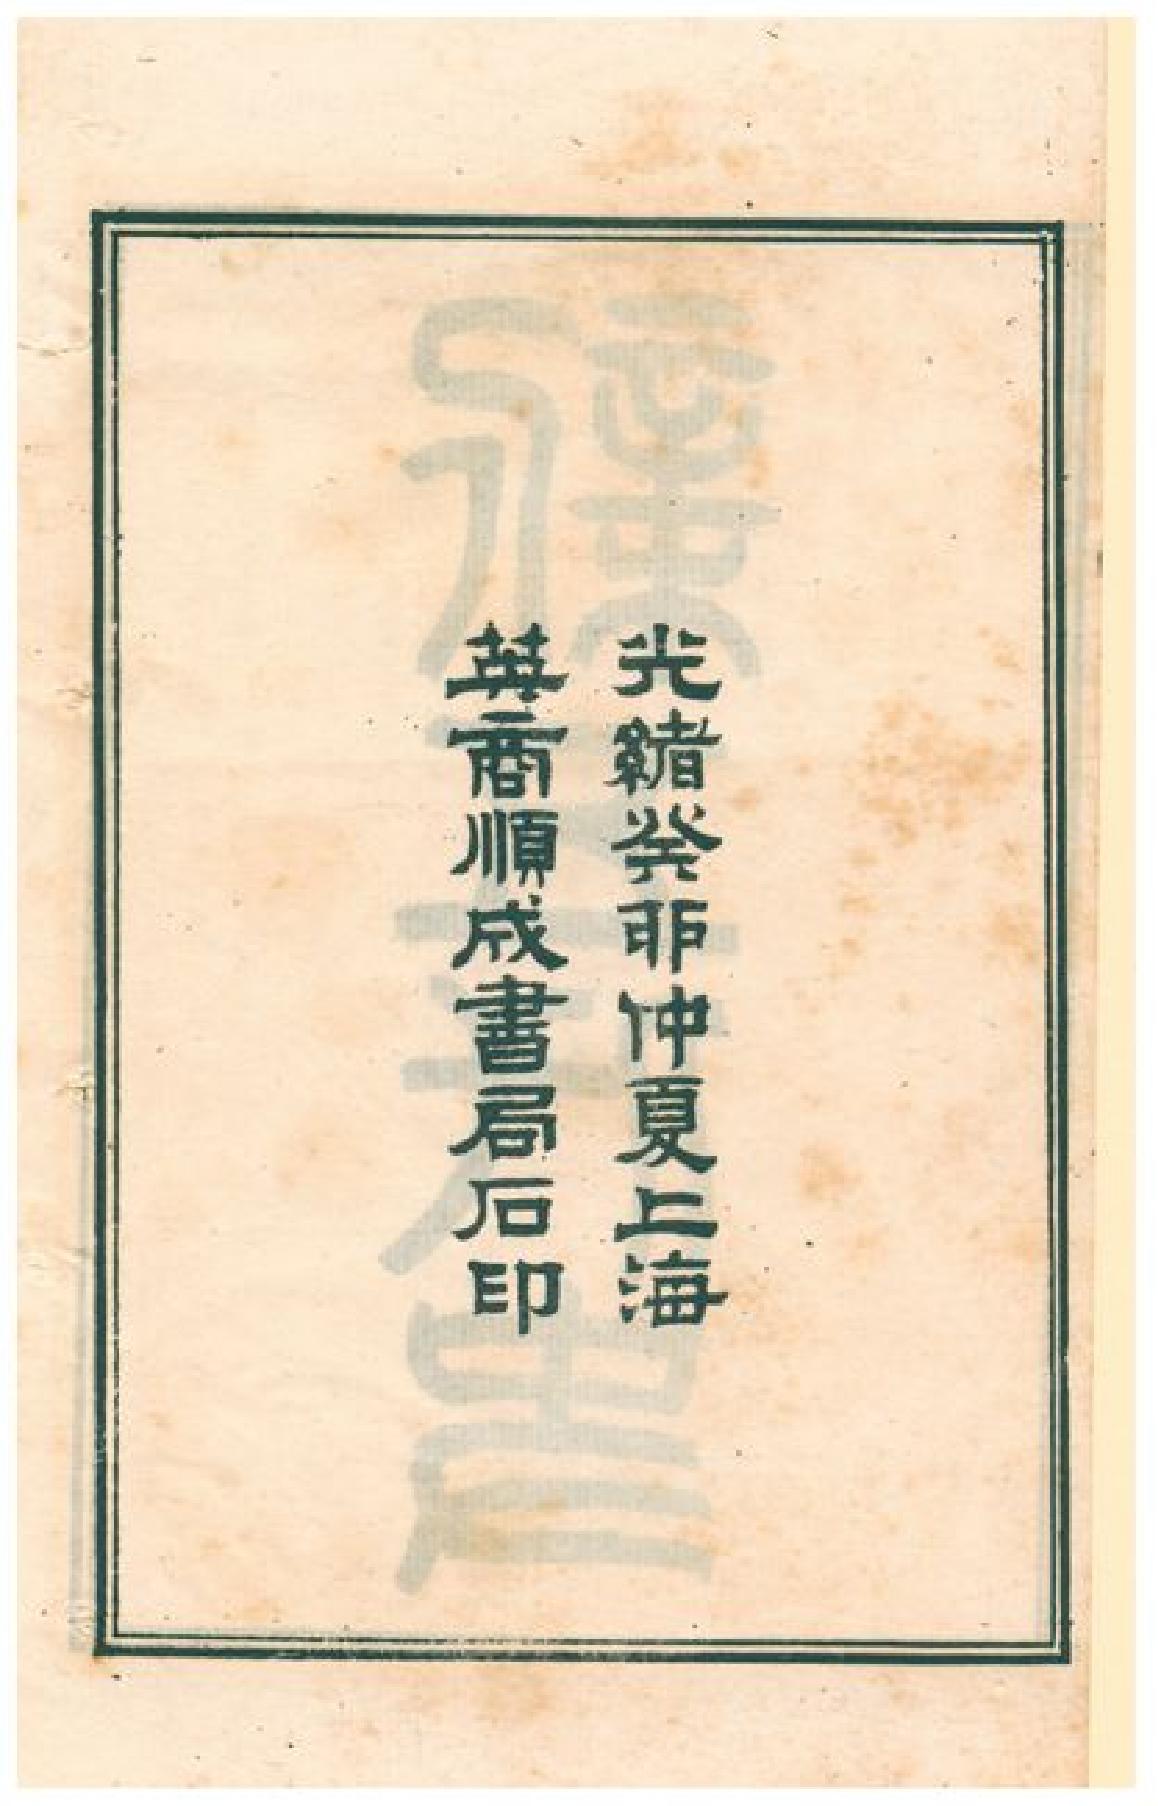 光緒癸卯仲夏上海
英商順成書局石印